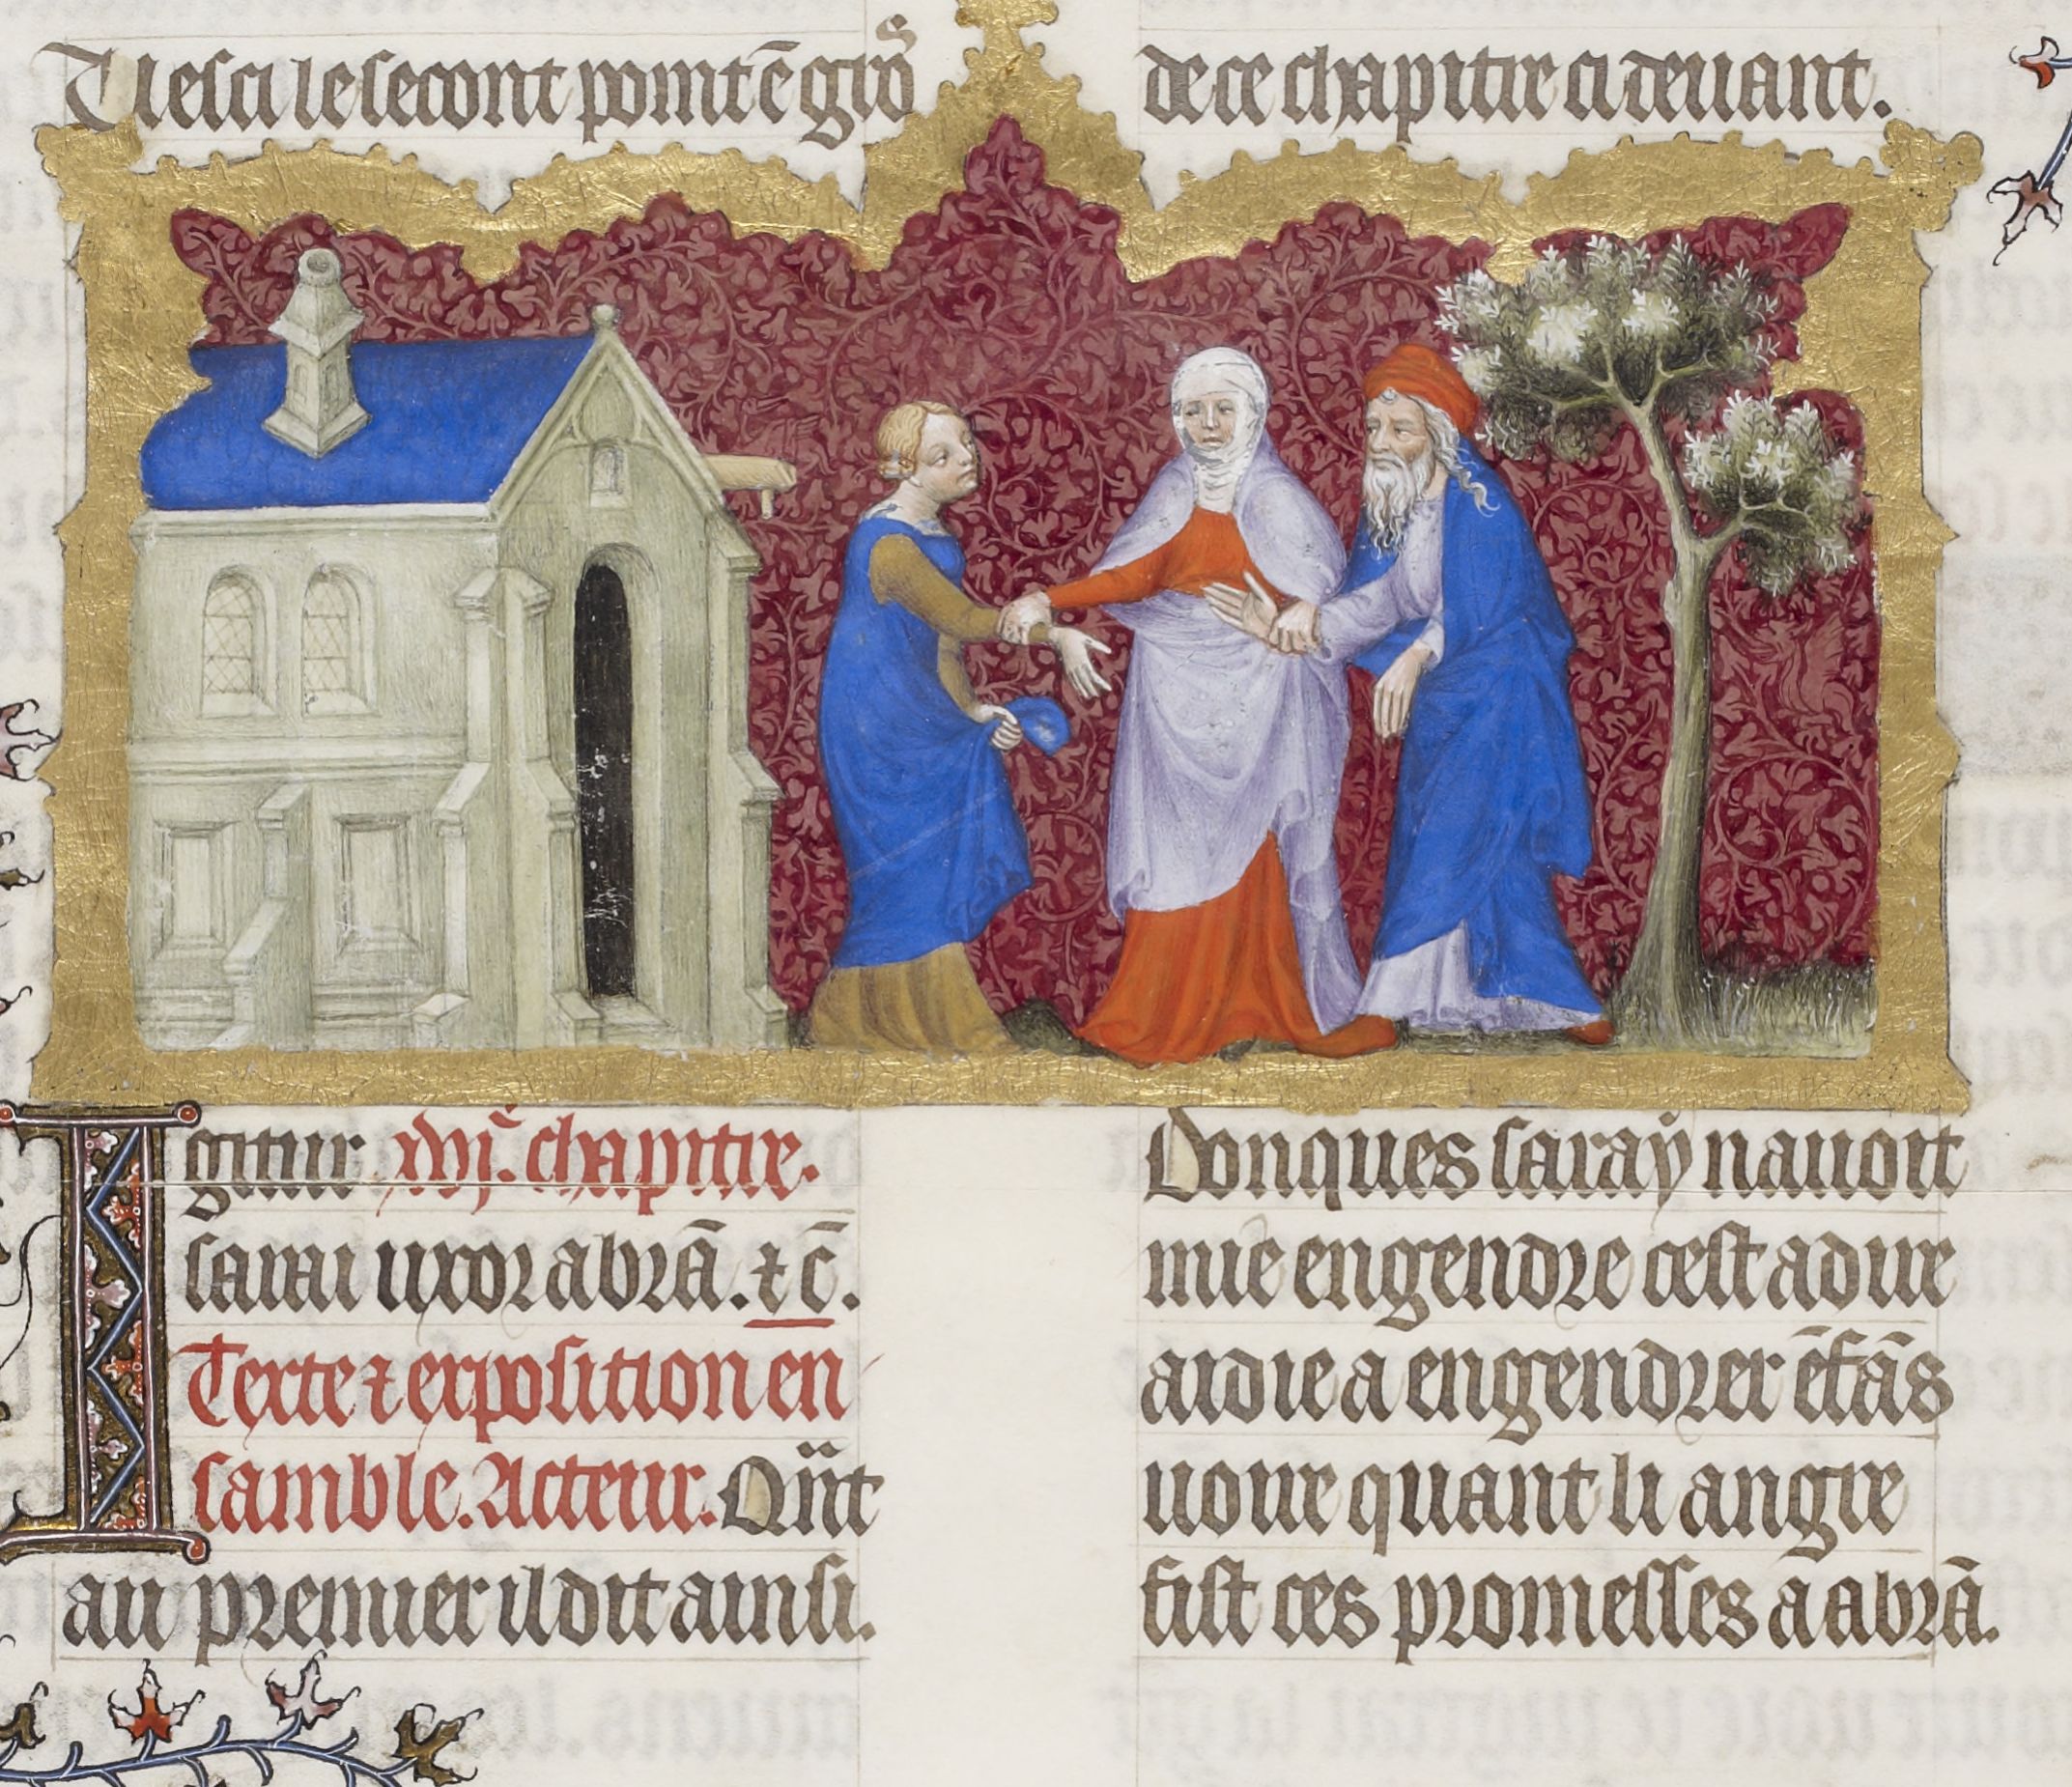 Uesci le secont point ē gros
de ce chapitre ci deuant.
Igitur .xvj. chapitre.
sarai uxor abrā. ⁊ c̄.
Texte ⁊ exposition en
samble. Acteur. Qn̄t
au premier il dit ainsi.
Donques saraẏ nauoit
mie engendre cest adire
aidie a engendrer ēfās
uoire quant li angre
fist ces promesses a abrā.